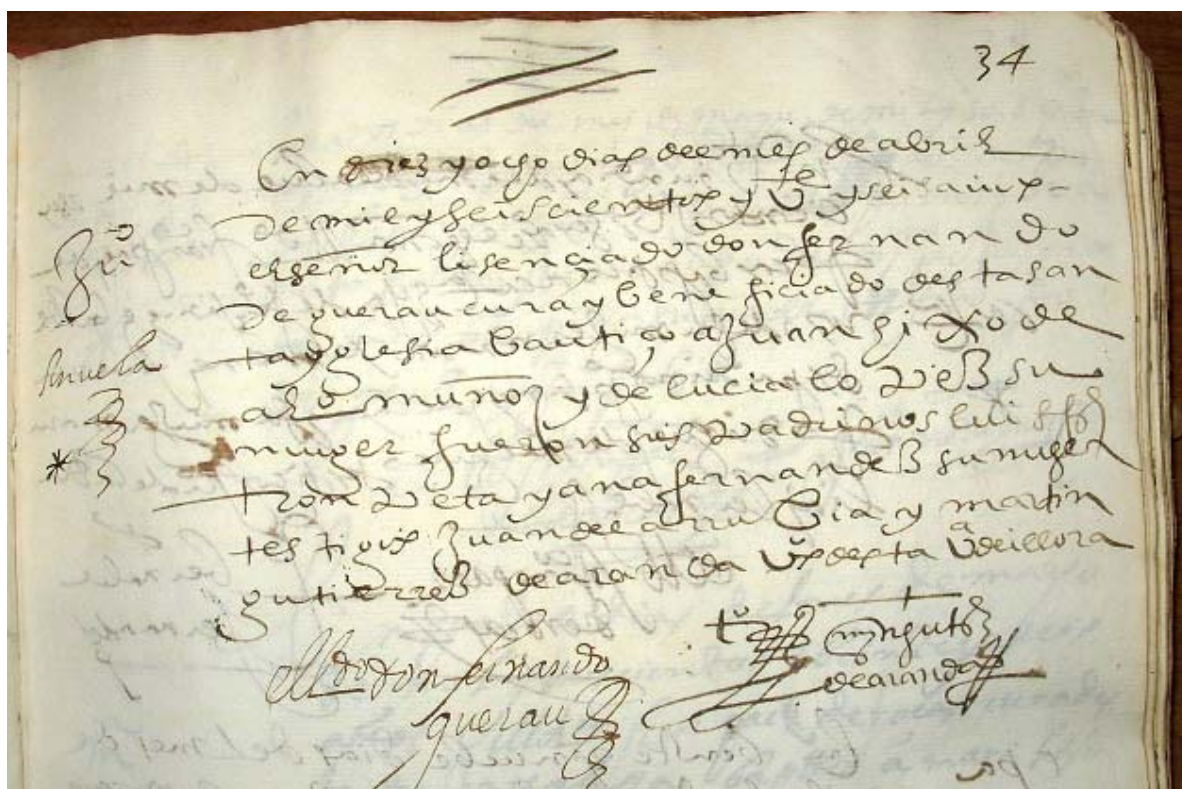 34
En diez y ocho dias del mes de abril
de mil y seiscientos y Vte y seis años
el señor lisençiado don fernando
de querau cura y beneficiado desta san
ta yglesia bautiço a Juan hixo de
alo muñoz y de lucia lopez su
muger fueron sus padrinos
tron y ana fernandez su muger
testigos Juan de arrubia y martin
gutierrez de aranda vos desta va de illora
Juo
El ldo don fernando
querau
to
myn gutrz
de aranda